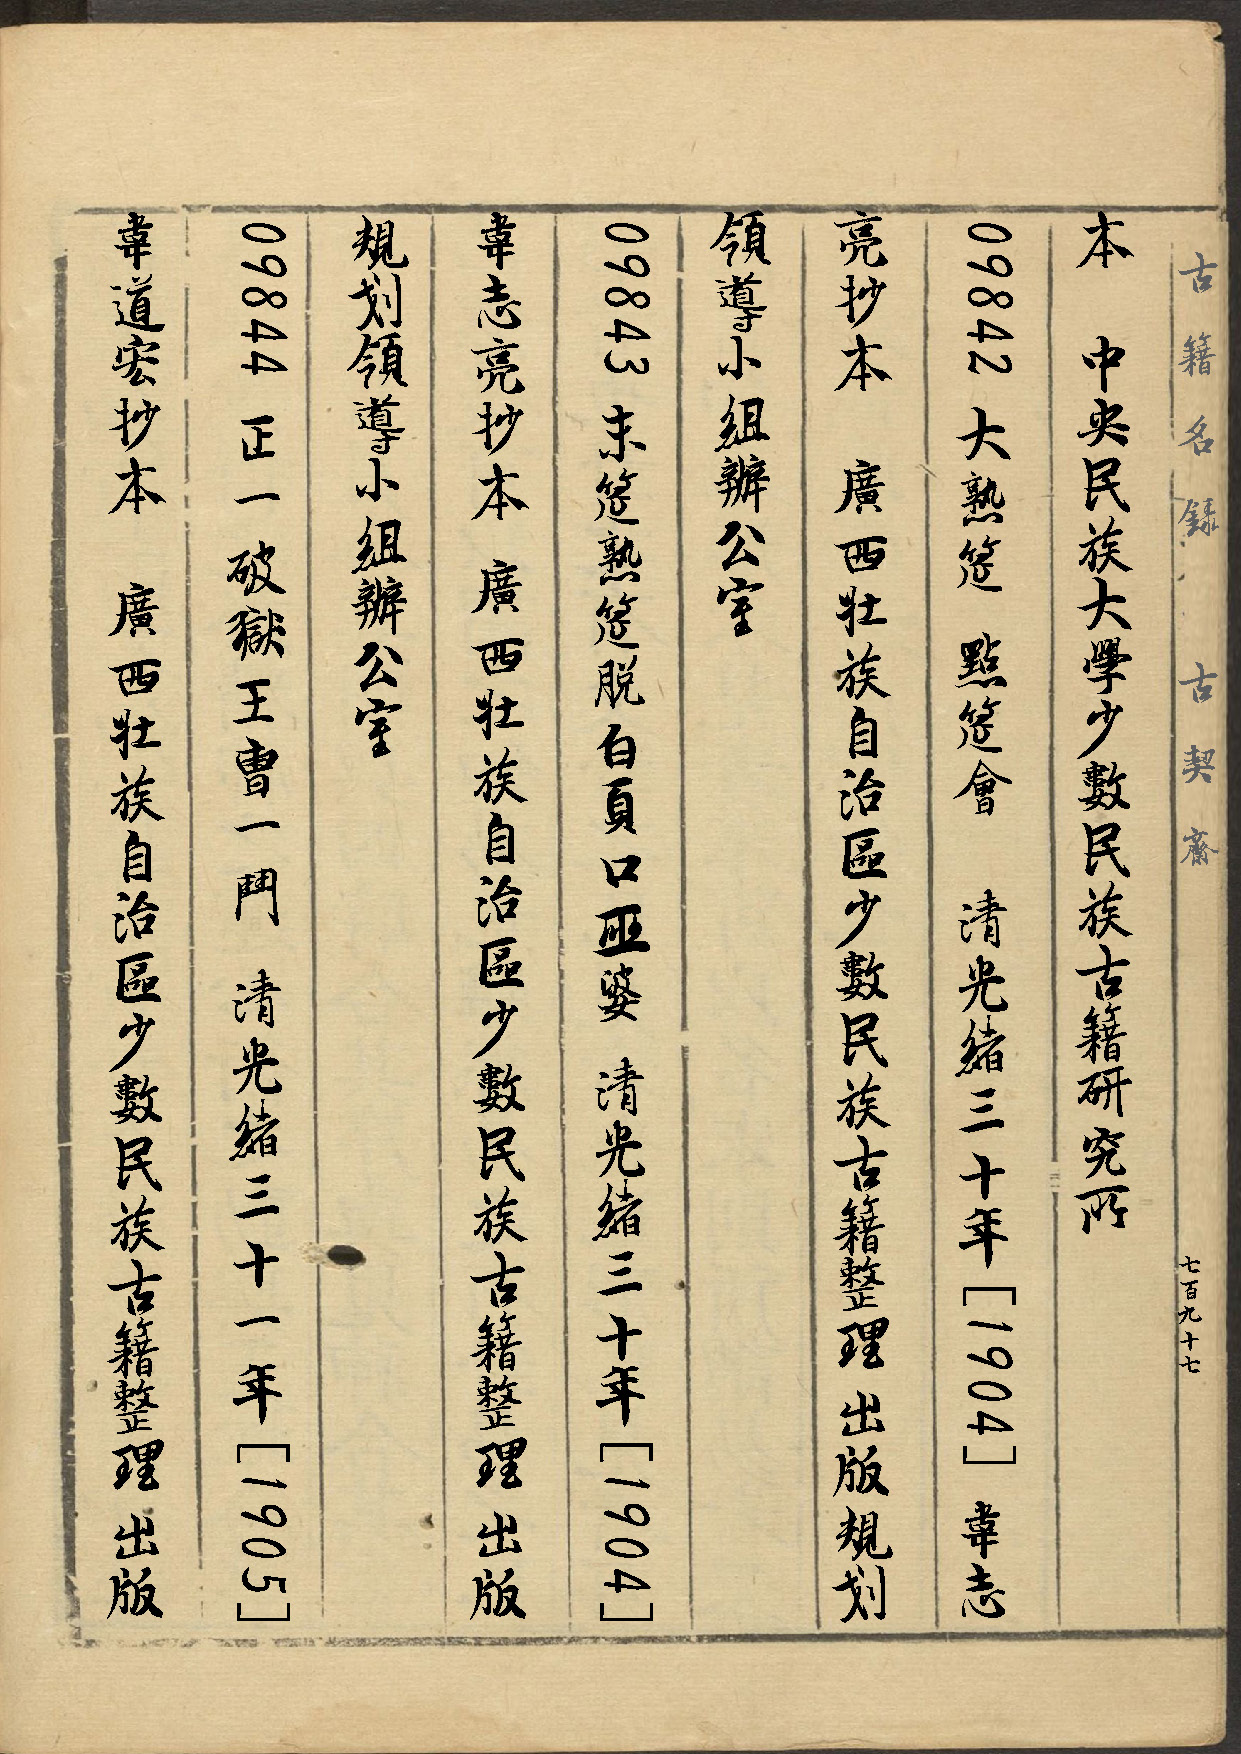 古籍名錄 古契齋 七百九十七
本 中央民族大學少數民族古籍研究所
09842 大熟筵 點筵會 清光緒三十年[1904] 韋志
亮抄本 廣西壯族自治區少數民族古籍整理出版規划
領導小組辦公室
09843 末筵熟筵脱白頁口匝婆 清光緒三十年[1904]
韋志亮抄本 廣西壯族自治區少數民族古籍整理出版
規划領導小組辦公室
09844 正一破獄王曹一門 清光緒三十一年[1905]
韋道宏抄本 廣西壯族自治區少數民族古籍整理出版